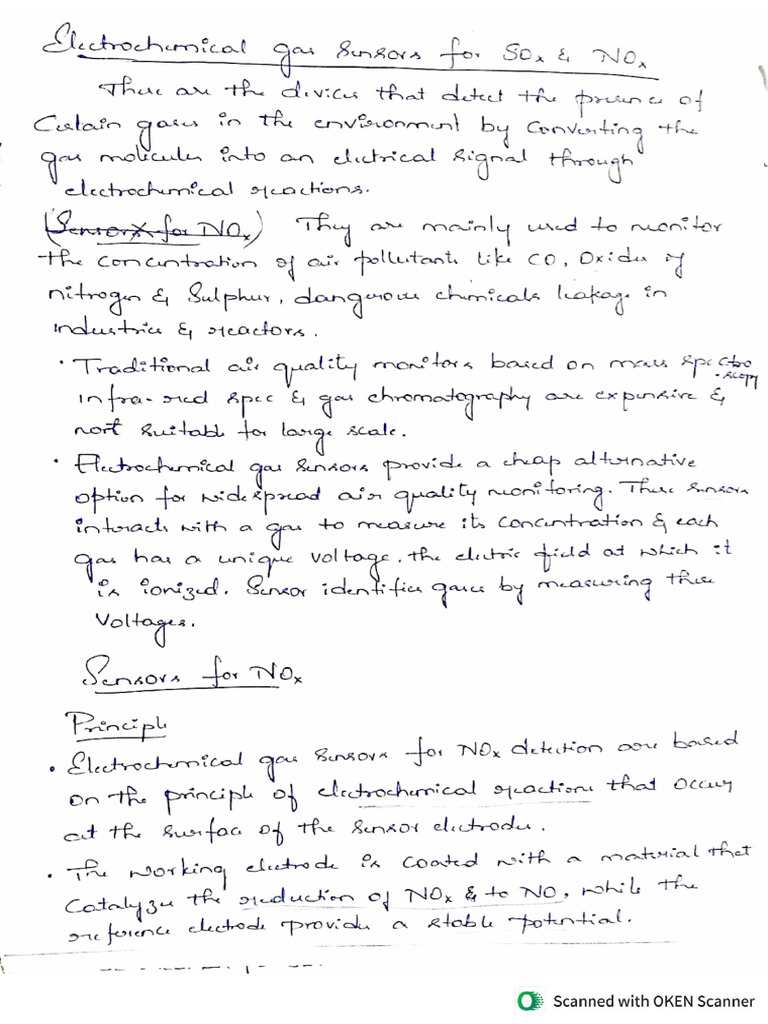 Electrochemical gas sensors for SOx & NOx
These are the devices that detect the presence of
Certain gases in the environment by converting the
gas molecules into an electrical signal through
electrochemical reactions.
(Sensors for NOx) They are mainly used to monitor
the concentration of air pollutants like CO, Oxides of
nitrogen & Sulphur, dangerous chemicals leakage in
industries & reactors.
• Traditional air quality monitors based on mass spectro
-scopy
infra-red spec & gas chromatography are expensive &
not suitable for large scale.
• Electrochemical gas sensors provide a cheap alternative
option for widespread air quality monitoring. These sensors
interacts with a gas to measure its concentration & each
gas has a unique voltage. the electric field at which it
is ionized. Sensor identifies gases by measuring these
Voltages.
Sensors for NOx
Principle
• Electrochemical gas sensors for NOx detection are based
on the principle of electrochemical reactions that occur
at the surface of the sensor electrodes.
• The working electrode is coated with a material that
Catalyzes the reduction of NOx & to NO, while the
reference electrode provides a stable potential.
Scanned with OKEN Scanner